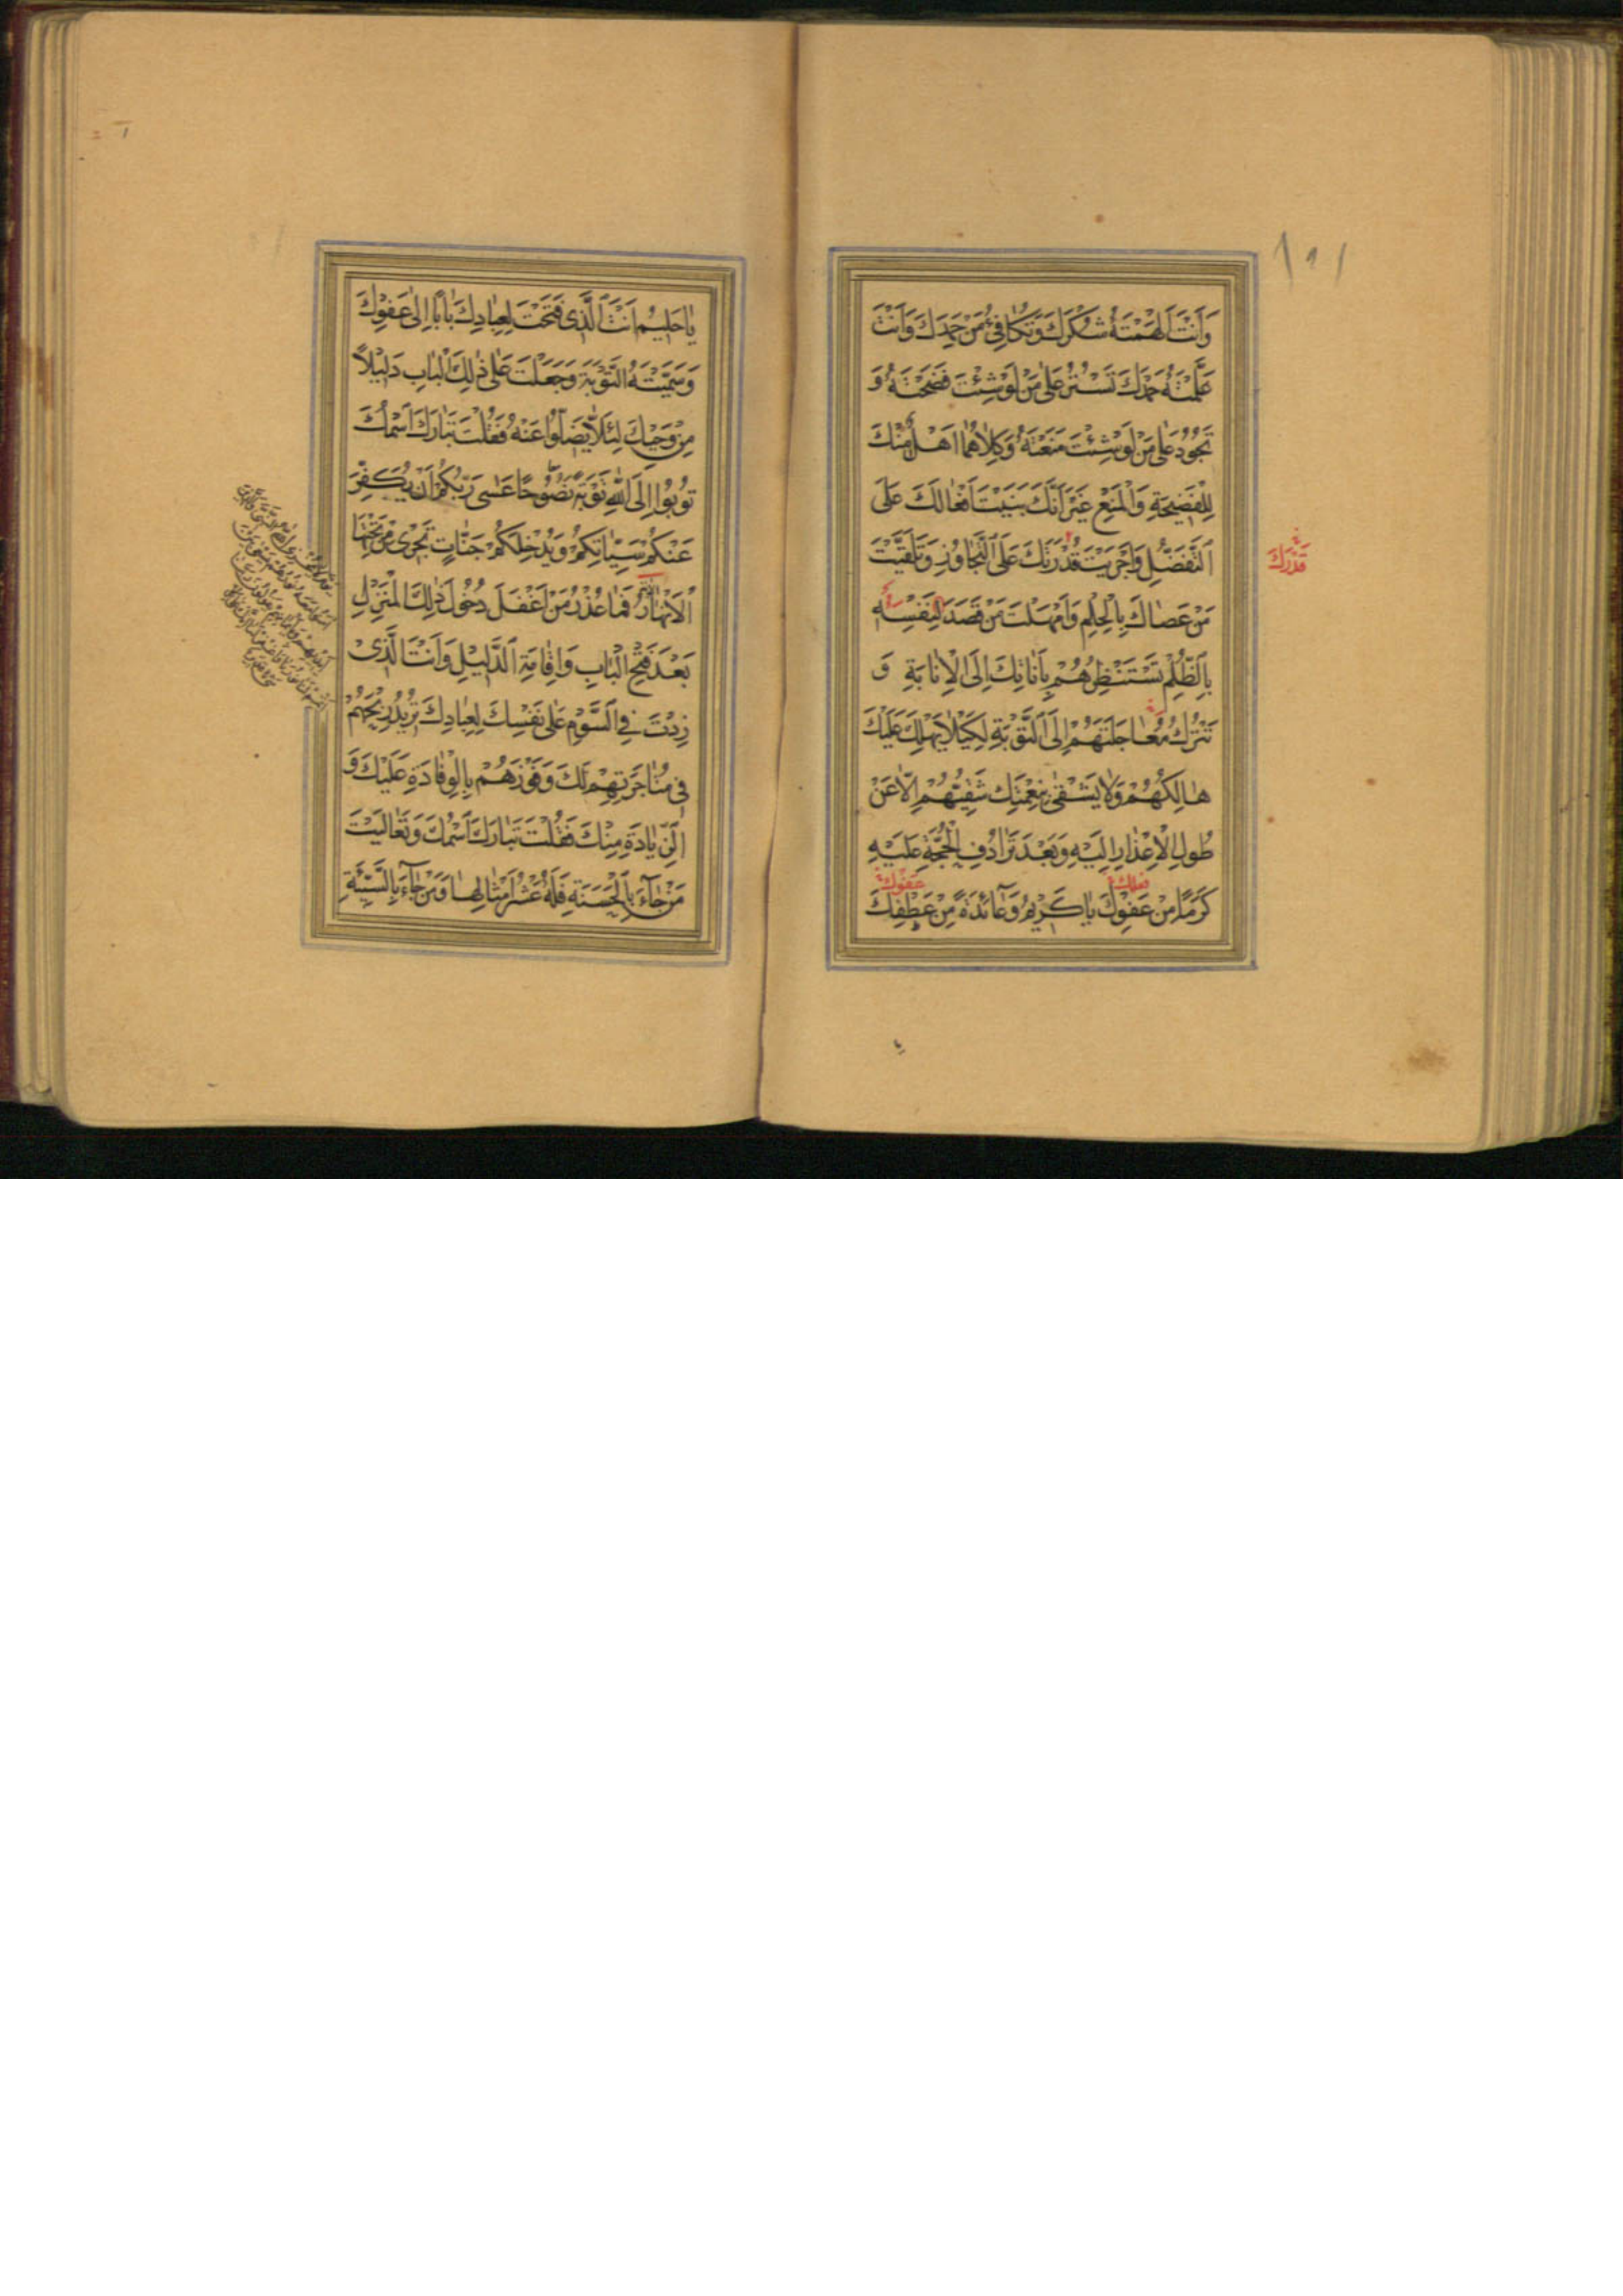 وَاَنْتَ اَلْهَمْتَهُ شُكْرَكَ وَتُكَافِئُ مَنْ حَمِدَكَ وَاَنْتَ
عَلَّمْتَهُ حَمْدَكَ تَسْتُرُ عَلىٰ مَنْ لَوْ شِئْتَ فَضَحْتَهُ وَ
تَجُوْدُ عَلىٰ مَنْ لَوْ شِئْتَ مَنَعْتَهُ وَكِلاٰهُمٰا اَهْلٌ مِنْكَ
لِلْفَضِيحَةِ وَالْمَنْعِ غَيْرَ اَنَّكَ بَنَيْتَ اَفْعٰالَكَ عَلَى
التَّفَضُّلِ وَاَجْرَيْتَ قُدْرَتَكَ عَلَى التَّجٰاوُزِ وَتَلَقَّيْتَ
قَدْرَكَ
مَنْ عَصٰاكَ بِالْحِلْمِ وَاَمْهَلْتَ مَنْ قَصَدَ لِنَفْسِهِ
بِالظُّلْمِ تَسْتَنْظِرُهُمْ بِاَنٰاتِكَ اِلَى الْاِنٰابَةِ وَ
تَتْرُكُ مُعٰاجَلَتَهُمْ اِلَى التَّوْبَةِ لِكَيْلاٰ يَهْلِكَ عَلَيْكَ
هٰالِكُهُمْ وَلاٰ يَشْقىٰ بِنِعْمَتِكَ شَقِيُّهُمْ اِلاّٰ عَنْ
طُولِ الْاِعْذٰارِ اِلَيْهِ وَبَعْدَ تَرٰادُفِ الْحُجَّةِ عَلَيْهِ
فعلك عَفْوِكَ
كَرَمًا مِنْ عَفْوِكَ يٰا كَرِيْمُ وَعٰائِدَةً مِنْ عَطْفِكَ
يٰا حَلِيْمُ اَنْتَ الَّذِى فَتَحْتَ لِعِبٰادِكَ بٰابًا اِلىٰ عَفْوِكَ
وَسَمَّيْتَهُ التَّوْبَةَ وَجَعَلْتَ عَلىٰ ذٰلِكَ الْبٰابِ دَلِيْلاً
مِنْ وَحْيِكَ لِئَلاّٰ يَضِلُّوا عَنْهُ فَقُلْتَ تَبٰارَكَ اسْمُكَ
تُوبُوا اِلَى اللّٰهِ تَوْبَةً نَصُوْحًا عَسىٰ رَبُّكُمْ اَنْ يُكَفِّرَ
عَنْكُمْ سَيِّئٰاتِكُمْ وَيُدْخِلَكُمْ جَنّٰاتٍ تَجْرِى مِنْ تَحْتِهَا
الْاَنْهٰارُ فَمٰا عُذْرُ مَنْ اَغْفَلَ دُخُولَ ذٰلِكَ الْمَنْزِلِ
بَعْدَ فَتْحِ الْبٰابِ وَاِقٰامَةِ الدَّلِيْلِ وَاَنْتَ الَّذِى
زِدْتَ فِى السَّوْمِ عَلىٰ نَفْسِكَ لِعِبٰادِكَ تُرِيْدُ رِبْحَهُمْ
فِى مُتٰاجَرَتِهِمْ لَكَ وَفَوْزَهُمْ بِالْوِفٰادَةِ عَلَيْكَ وَ
الزِّيٰادَةِ مِنْكَ فَقُلْتَ تَبٰارَكَ اسْمُكَ وَتَعٰالَيْتَ
مَنْ جٰآءَ بِالْحَسَنَةِ فَلَهُ عَشْرُ اَمْثٰالِهٰا وَمَنْ جٰآءَ بِالسَّيِّئَةِ